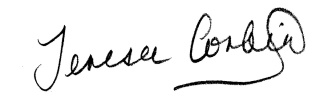 Teresa Corbin